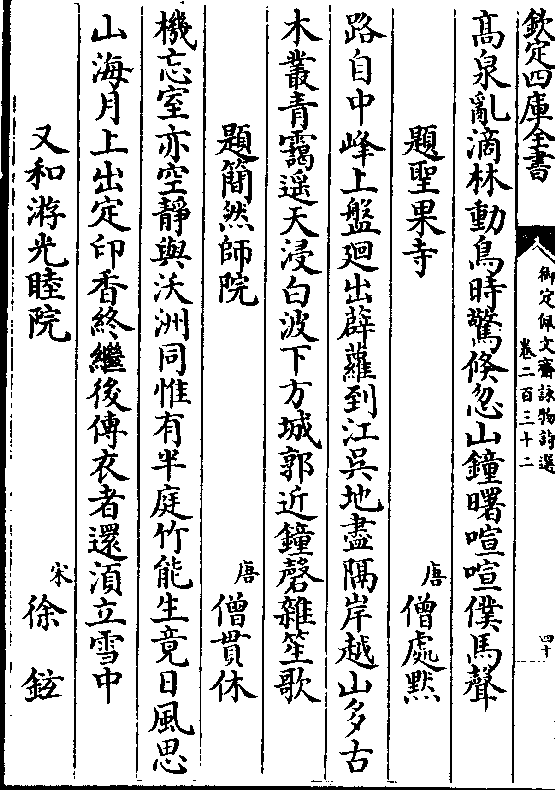 欽定四庫全書
御定佩文齋詠物詩選
卷二百三十二
四十
髙泉亂滴林動鳥時驚倐忽山鐘曙喧喧僕馬聲
題聖果寺
唐
僧處默
路自中峰上盤廻出薜蘿到江吳地盡隔岸越山多古
木叢青靄遥天浸白波下方城郭近鐘磬雜笙歌
題簡然師院
唐
僧貫休
機忘室亦空靜與沃洲同惟有半庭竹能生竟日風思
山海月上出定印香終繼後傳衣者還湏立雪中
又和游光睦院
宋
徐鉉